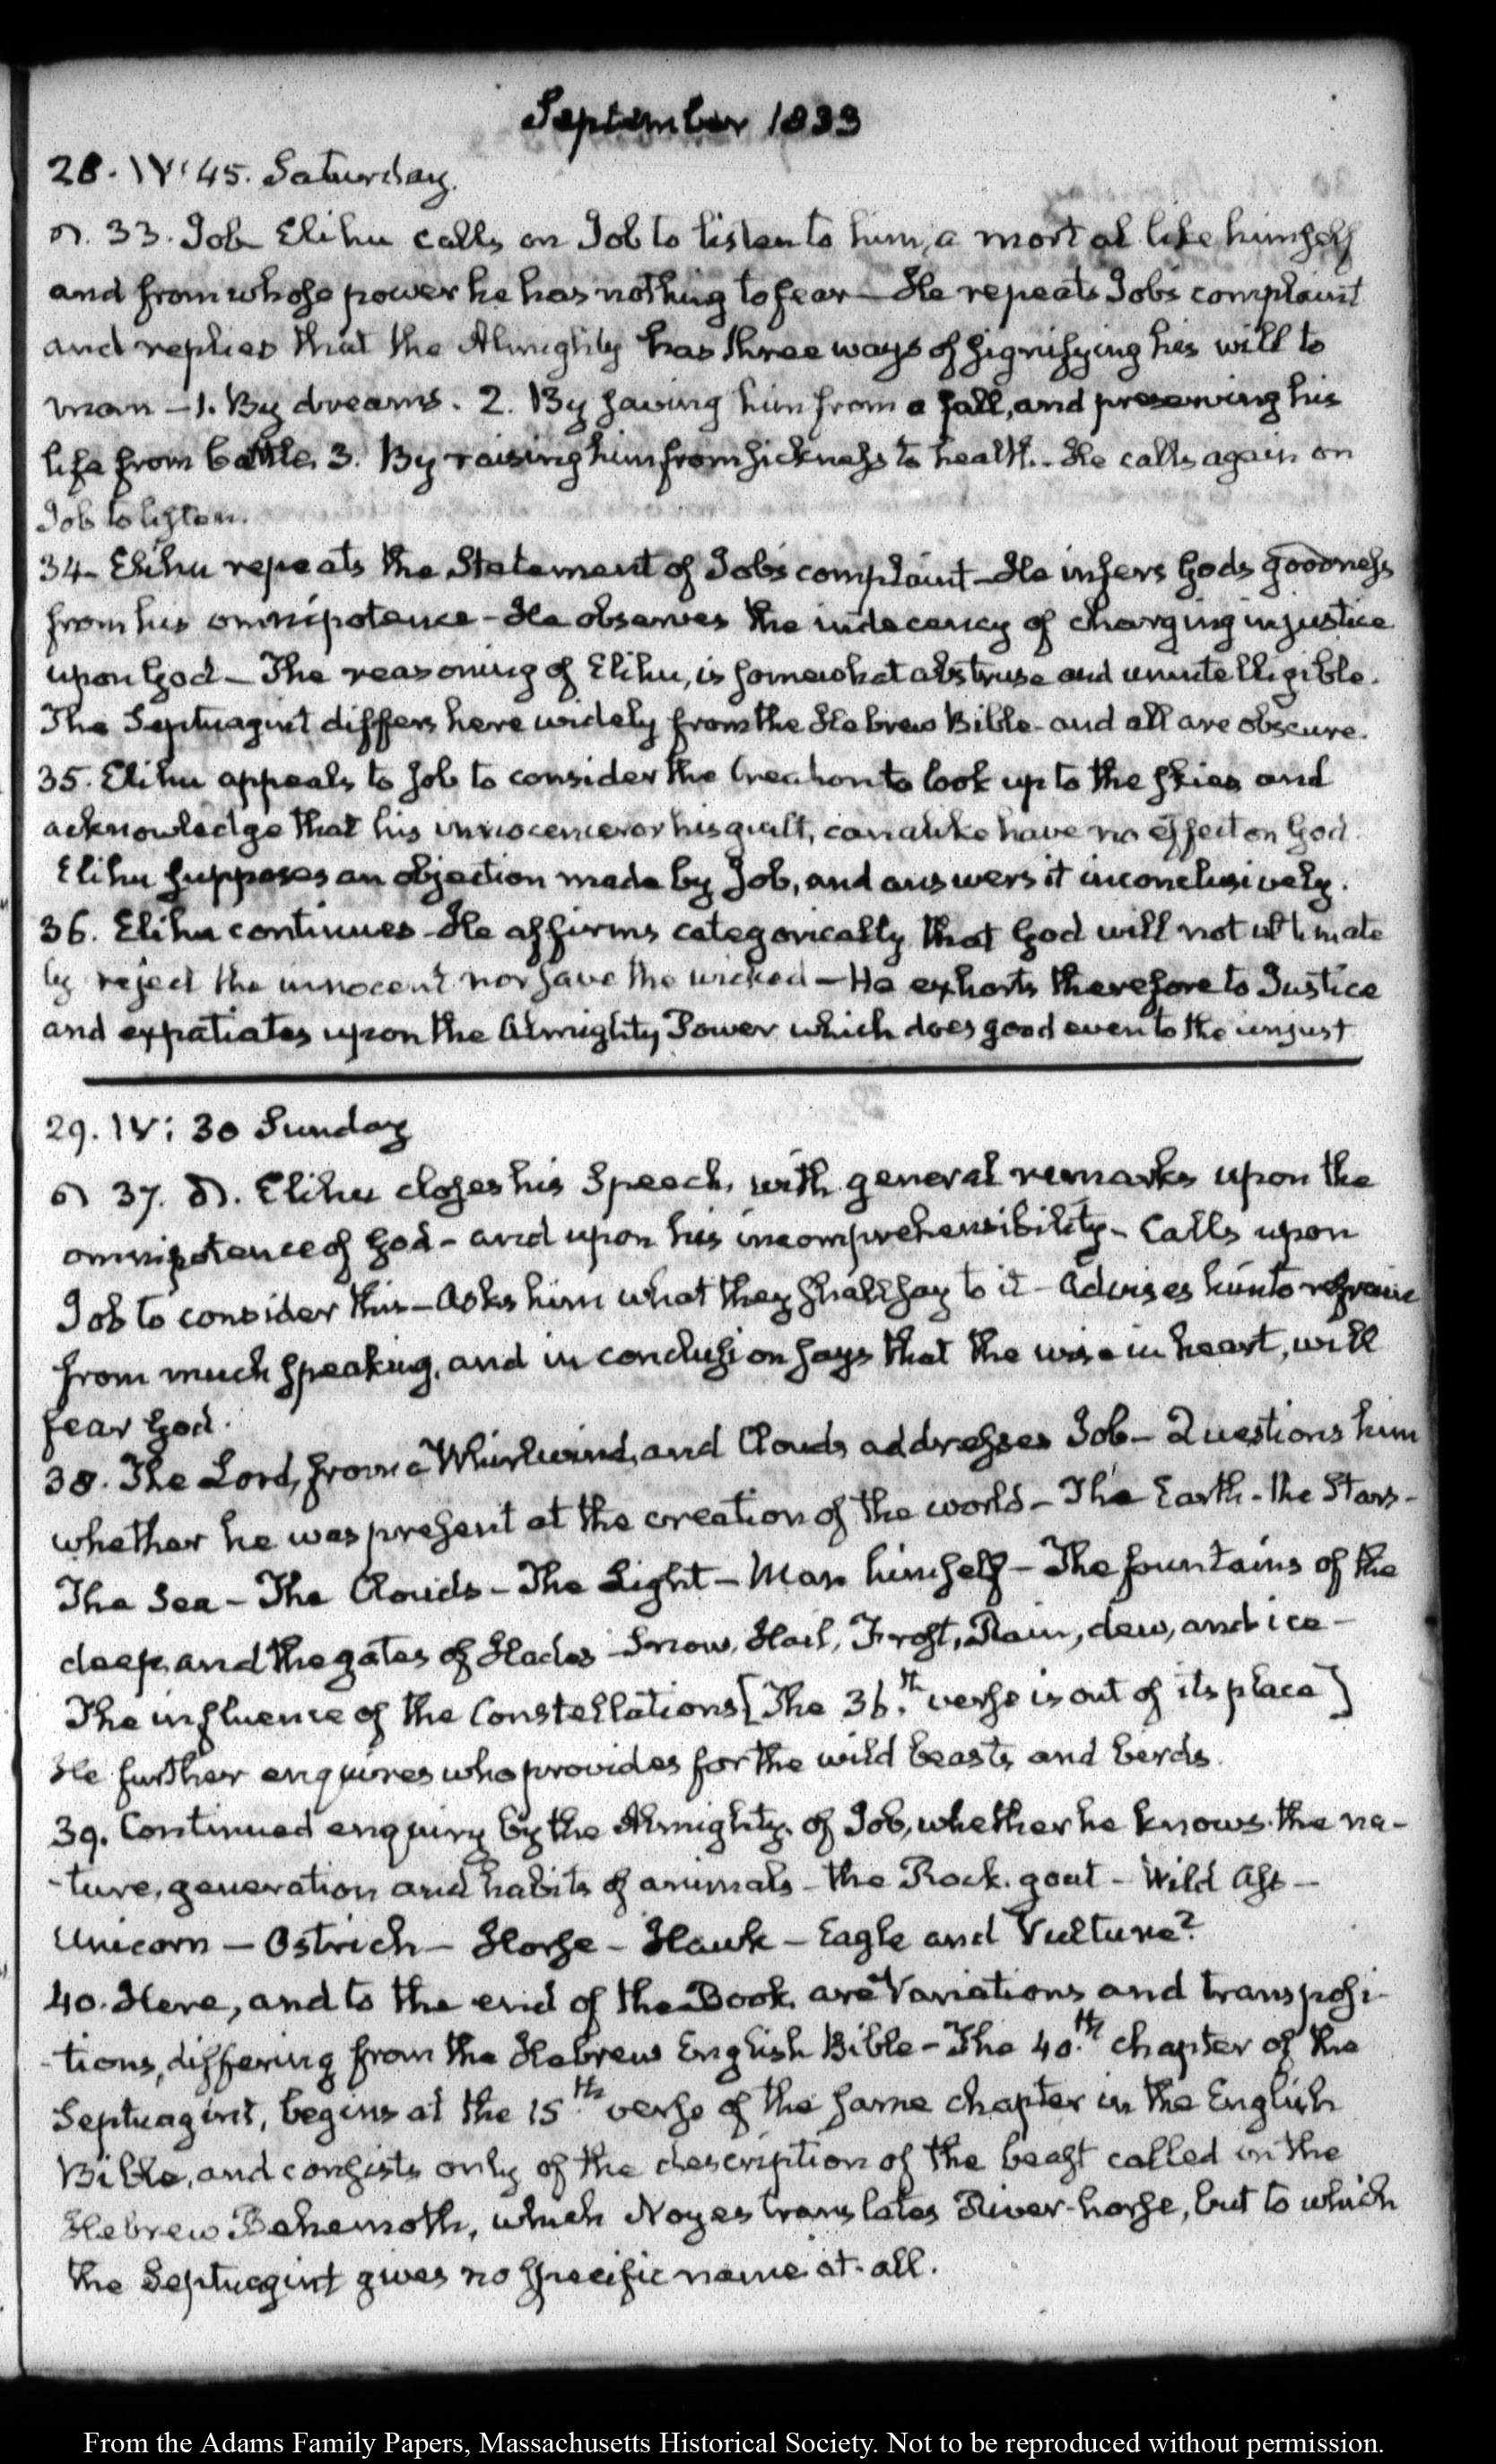 September 1833
28. IV:45. Saturday.
33. Job Elihu calls on Job to listen to him, a mortal like himself
and from whose power he has nothing to fear — He repeats Jobs complaint
and replies that the Almighty has three ways of signifying his will to
man — 1. By dreams. 2. By saving him from a fall, and preserving his
life from battle, 3. By raising him from sickness to health. He calls again on
Job to listen.
34 – Elihu repeats the Statement of Job's complaint – He infers Gods goodness
from his omnipotence – He observes the indecency of charging injustice
upon God – The reasoning of Elihu, is somewhat abstruse and unintelligible.
The Septuagint differs here widely from the Hebrew Bible – and all are obscure.
35. Elihu appeals to Job to consider the Creation to look up to the skies and
acknowledge that his innocence or his guilt, can alike have no effect on God.
Elihu supposes an objection made by Job, and answers it inconclusively.
36. Elihu continues – He affirms categorically that God will not ultimate
ly reject the innocent nor save the wicked – He exhorts therefore to Justice
and expatiates upon the Almighty Power which does good even to the unjust
29. IV: 30 Sunday
37. Elihu closes his Speech, with general remarks upon the
omnipotence of God – and upon his incomprehensibility – Calls upon
Job to consider this – Asks him what they shall say to it – Advises him to refrain
from much speaking, and in conclusion says that the wise in heart, will
fear God.
38. The Lord, from a Whirlwind, and Clouds addresses Job – Questions him
whether he was present at the creation of the world – The Earth – the Stars –
The Sea – The Clouds – The Light – Man himself – The fountains of the
deep, and the gates of Hades – Snow, Hail, Frost, Rain, dew, and ice –
The influence of the Constellations [The 36.th verse is out of its place]
He further enquires who provides for the wild beasts and birds.
39. Continued enquiry by the Almighty, of Job, whether he knows the na-
-ture, generation and habits of animals – the Rock. goat – Wild Ass –
Unicorn – Ostrich – Horse – Hawk – Eagle and Vulture?
40. Here, and to the end of the Book, are Variations and transposi-
-tions, differing from the Hebrew English Bible – The 40.th chapter of the
Septuagint, begins at the 15.th verse of the same chapter in the English
Bible, and consists only of the description of the beast called in the
Hebrew Behemoth, which Noyes translates River-horse, but to which
the Septuagint gives no specific name at all.
From the Adams Family Papers, Massachusetts Historical Society. Not to be reproduced without permission.